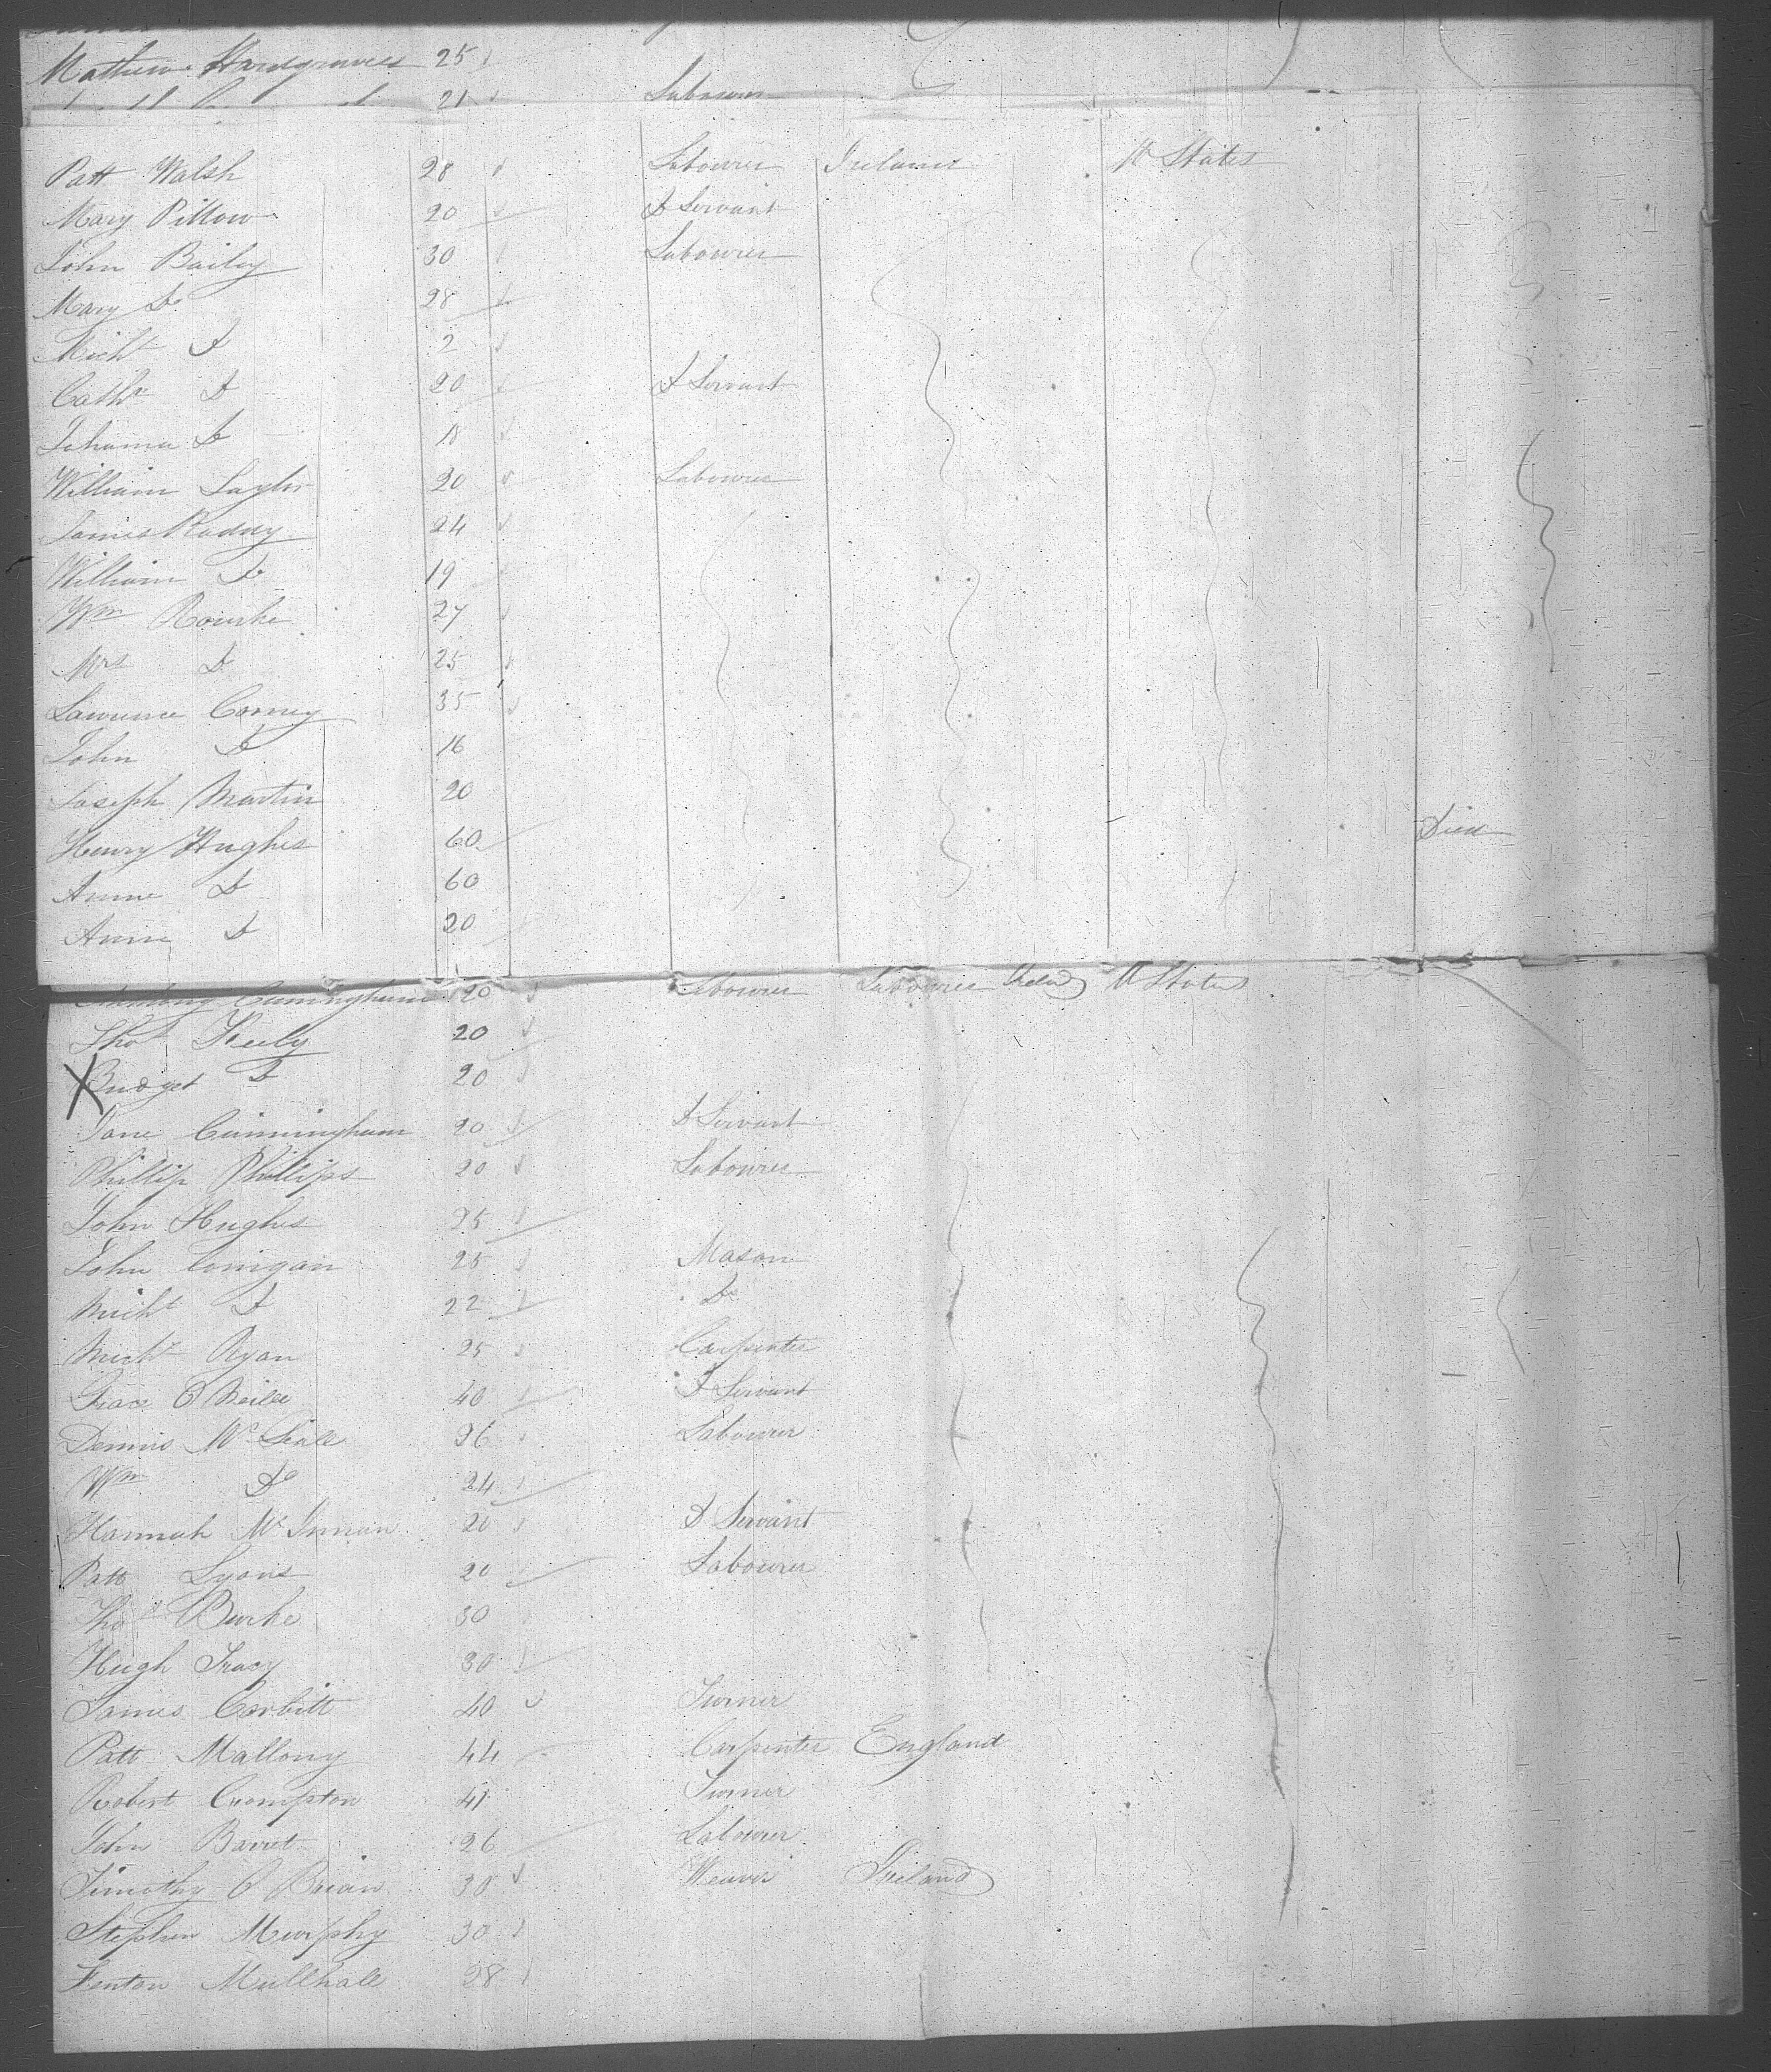 Mathew Hargraves 25
21 Labourer
Patt Walsh 28 Labourer Ireland U States
Mary Pillow 20 D Servant
John Bailey 30 Labourer
Mary Do 28
Michl Do 2
Cathe Do 20 D Servant
Johanna Do 18
William Taylor 20 Labourer
James Roddy 24
William Do 19
Wm Rourke 27
Mrs Do 25
Lawrence Corney 35
John Do 16
Joseph Martin 20
Henry Hughes 60 Died
Anne Do 60
Anne Do 20
Cuningham 20 Labourer Labourer Ireland U States
Thos Keely 20
X Bridget Do 20
Jane Cunningham 20 D Servant
Phillip Phillips 20 Labourer
John Hughes 25
John Corrigan 25 Mason
Michl Do 22 Do
Michl Ryan 25 Carpenter
O'Neill 40 D Servant
Dennis Mc 26 Labourer
Wm Do 24
Hannah Mc 20 D Servant
Patt Lyons 20 Labourer
Thos Burke 30
Hugh Tracy 30
James Corbitt 40 Turner
Patt Mallony 44 Carpenter England
Robert Crompton 41 Turner
John Barret 26 Labourer
Timothy O Brian 30 Weaver Ireland
Stephen Murphy 30
Fenton Mullhall 28